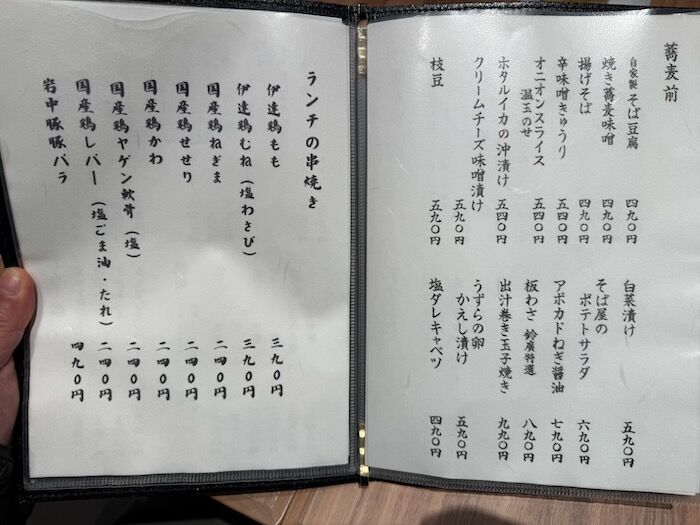 蕎麦前
自家製 そば豆腐 四九〇円
焼き蕎麦味噌 四九〇円
揚げそば 四九〇円
辛味噌きゅうり 五四〇円
オニオンスライス
温玉のせ 五四〇円
ホタルイカの沖漬け 五四〇円
クリームチーズ味噌漬け 五九〇円
枝豆 五九〇円
白菜漬け 五九〇円
そば屋の
ポテトサラダ 六九〇円
アボカドねぎ醤油 七九〇円
板わさ 鈴廣特選 八九〇円
出汁巻き玉子焼き 九九〇円
うずらの卵
かえし漬け 五九〇円
塩ダレキャベツ 四九〇円
ランチの串焼き
伊達鶏もも 三九〇円
伊達鶏むね（塩わさび） 三九〇円
国産鶏ねぎま 二四〇円
国産鶏せせり 二四〇円
国産鶏かわ 二四〇円
国産鶏ヤゲン軟骨（塩） 二四〇円
国産鶏レバー（塩ごま油・たれ） 二四〇円
岩中豚豚バラ 四九〇円